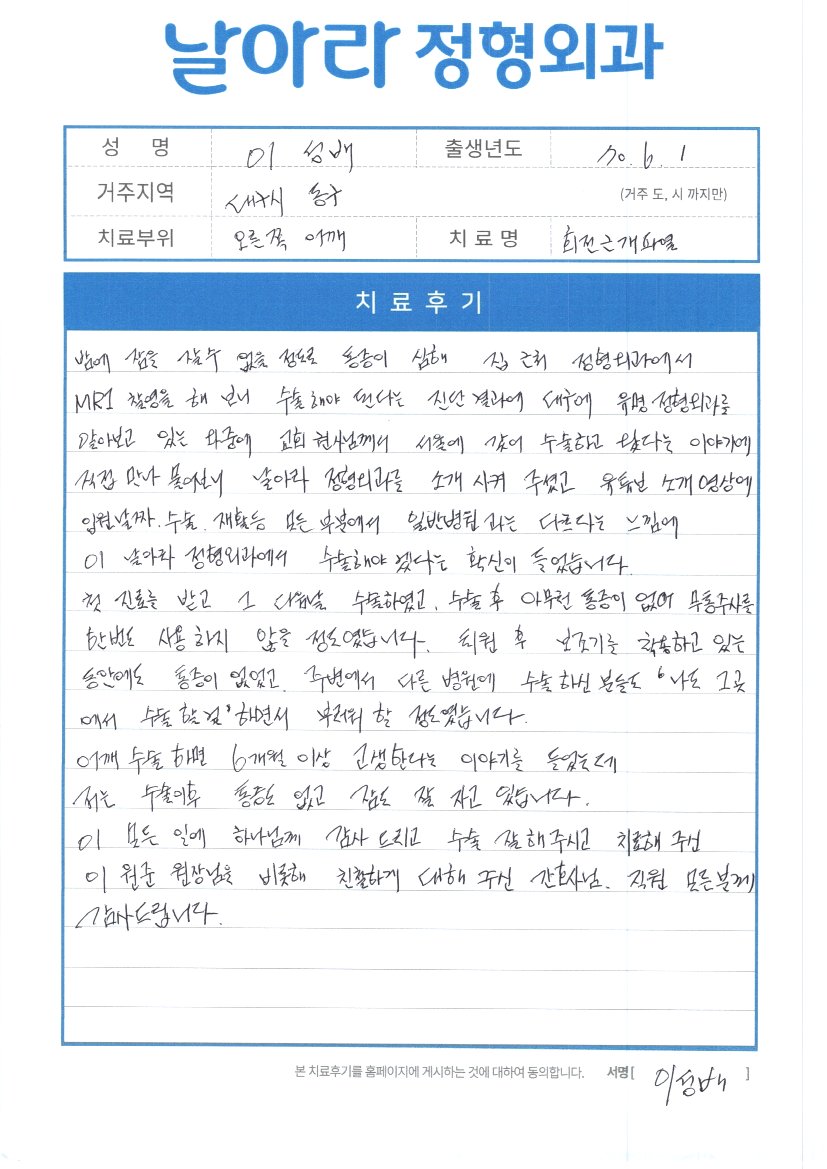 날아라 정형외과
성 명 이 성배 출생년도 70. 6. 1
거주지역 대구시 동구 (거주 도, 시 까지만)
치료부위 오른쪽 어깨 치 료 명 회전근개파열
치 료 후 기
밤에 잠을 잘수 없을 정도로 통증이 심해 집 근처 정형외과에서
MRI 촬영을 해 보니 수술해야 된다는 진단 결과에 대구에 유명 정형외과를
알아보고 있는 와중에 교회 권사님께서 서울에 갔어 수술하고 왔다는 이야기에
직접 만나 물어보니 날아라 정형외과를 소개 시켜 주셨고 유튜브 소개영상에
입원날짜. 수술. 재활등 모든 부분에서 일반병원과는 다르다는 느낌에
이 날아라 정형외과에서 수술해야 겠다는 확신이 들었습니다.
첫 진료를 받고 그 다음날 수술하였고, 수술 후 아무런 통증이 없어 무통주사를
한번도 사용하지 않을 정도였습니다. 퇴원 후 보조기를 착용하고 있는
동안에도 통증이 없었고. 주변에서 다른 병원에 수술하신 분들도 '나도 그곳
에서 수술 할 걸' 하면서 부러워 할 정도였습니다.
어깨 수술 하면 6개월 이상 고생한다는 이야기를 들었는데
저는 수술이후 통증도 없고 잠도 잘 자고 있습니다.
이 모든 일에 하나님께 감사 드리고 수술 잘 해주시고 치료해 주신
이 원준 원장님을 비롯해 친절하게 대해 주신 간호사님. 직원 모든분께
감사드립니다.
본 치료후기를 홈페이지에 게시하는 것에 대하여 동의합니다. 서명 [ 이성배 ]